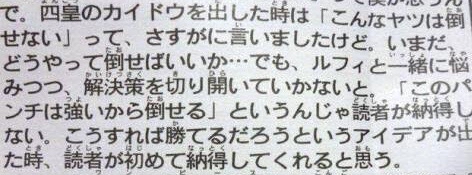 で。四皇のカイドウを出した時は「こんなヤツは倒
せない」って、さすがに言いましたけど。いまだ、
どうやって倒せばいいか…でも、ルフィと一緒に悩
みつつ、解決策を切り開いていかないと。「このパ
ンチは強いから倒せる」というんじゃ読者が納得し
ない。こうすれば勝てるだろうというアイデアが出
た時、読者が初めて納得してくれると思う。